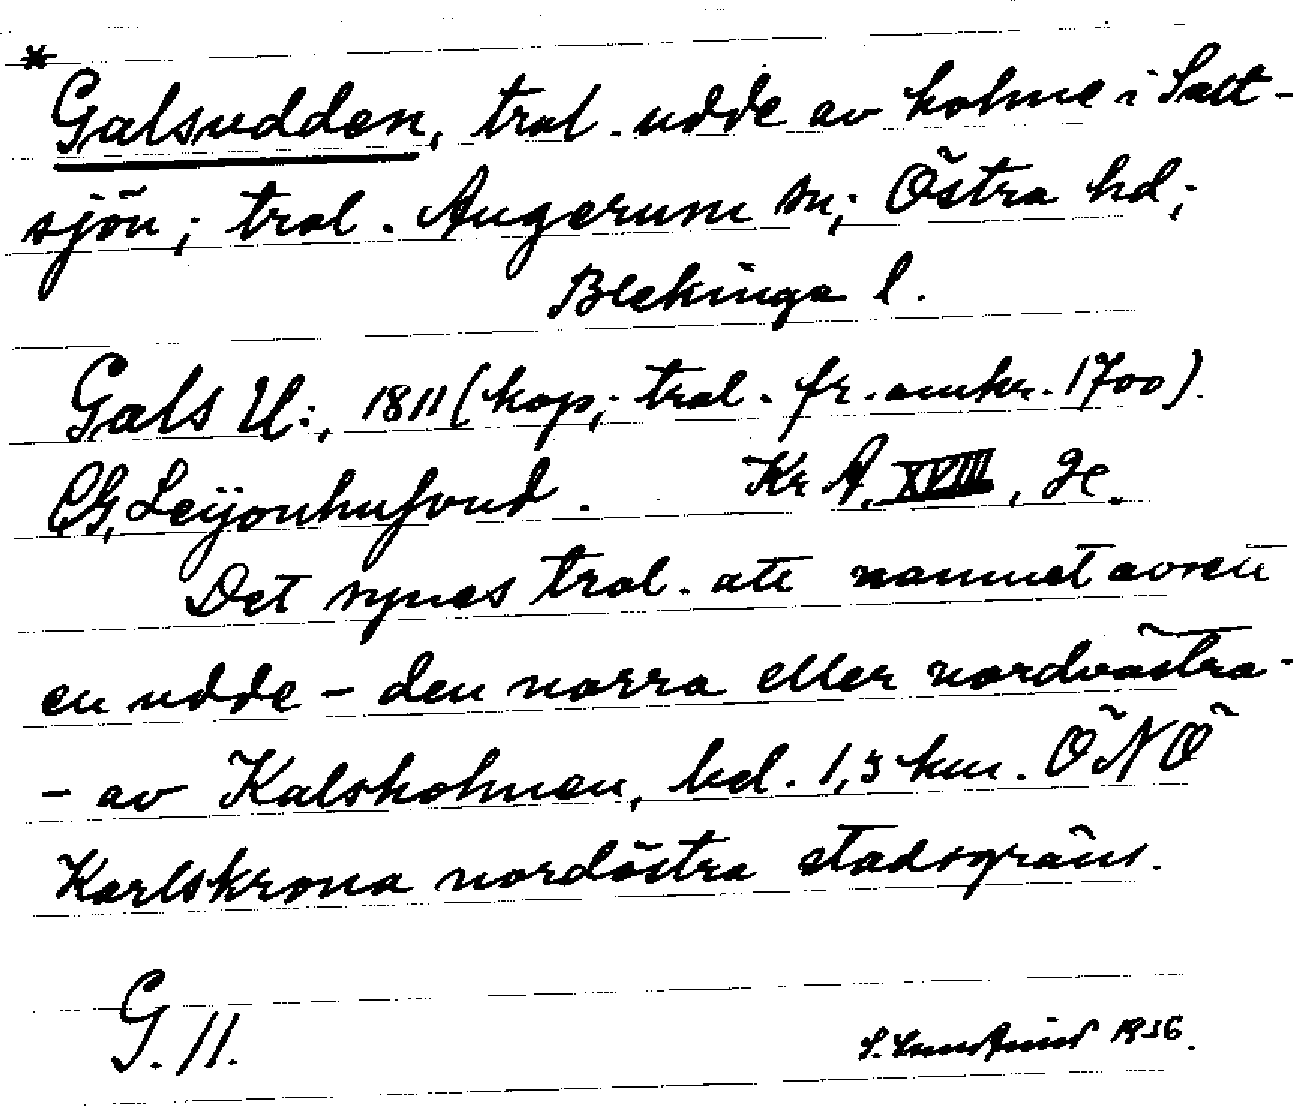 * Galsudden, trol. udde av holme i Salt-
sjön; trol. Augerum sn; Östra hd;
Blekinge l.
Gals U:, 1811 (kop; trol. fr. omkr. 1700).
CG, Leijonhufvud. Kr A. XVIII, 2c.
Det synes trol. att namnet avsett
en udde - den norra eller nordvästra -
- av Kalsholmen, bel. 1,5 km. ÖNÖ
Karlskrona nordöstra stadsgräns.
G. 11.
1936.